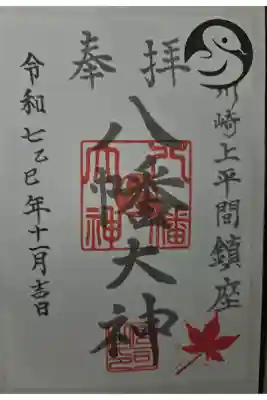 奉拝
川崎上平間鎮座
八幡大神
令和七乙巳年十一月吉日
八幡大神